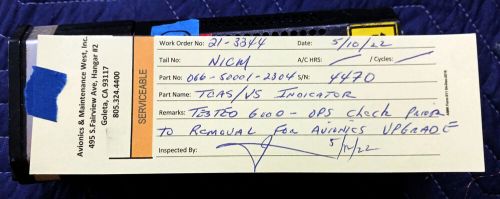 Avionics & Maintenance West, Inc.
495 S.Fairview Ave, Hangar #2
Goleta, CA 93117
805.324.4400
SERVICEABLE
Work Order No: 21-3244 Date: 5/10/22
Tail No: NICM A/C HRS: / / Cycles: /
Part No: 066-50001-2304 S/N: 4470
Part Name: TCAS/VS INDICATOR
Remarks: TESTED GOOD - OPS CHECK PRIOR
TO REMOVAL FOR AVIONICS UPGRADE
Inspected By: 5/10/22